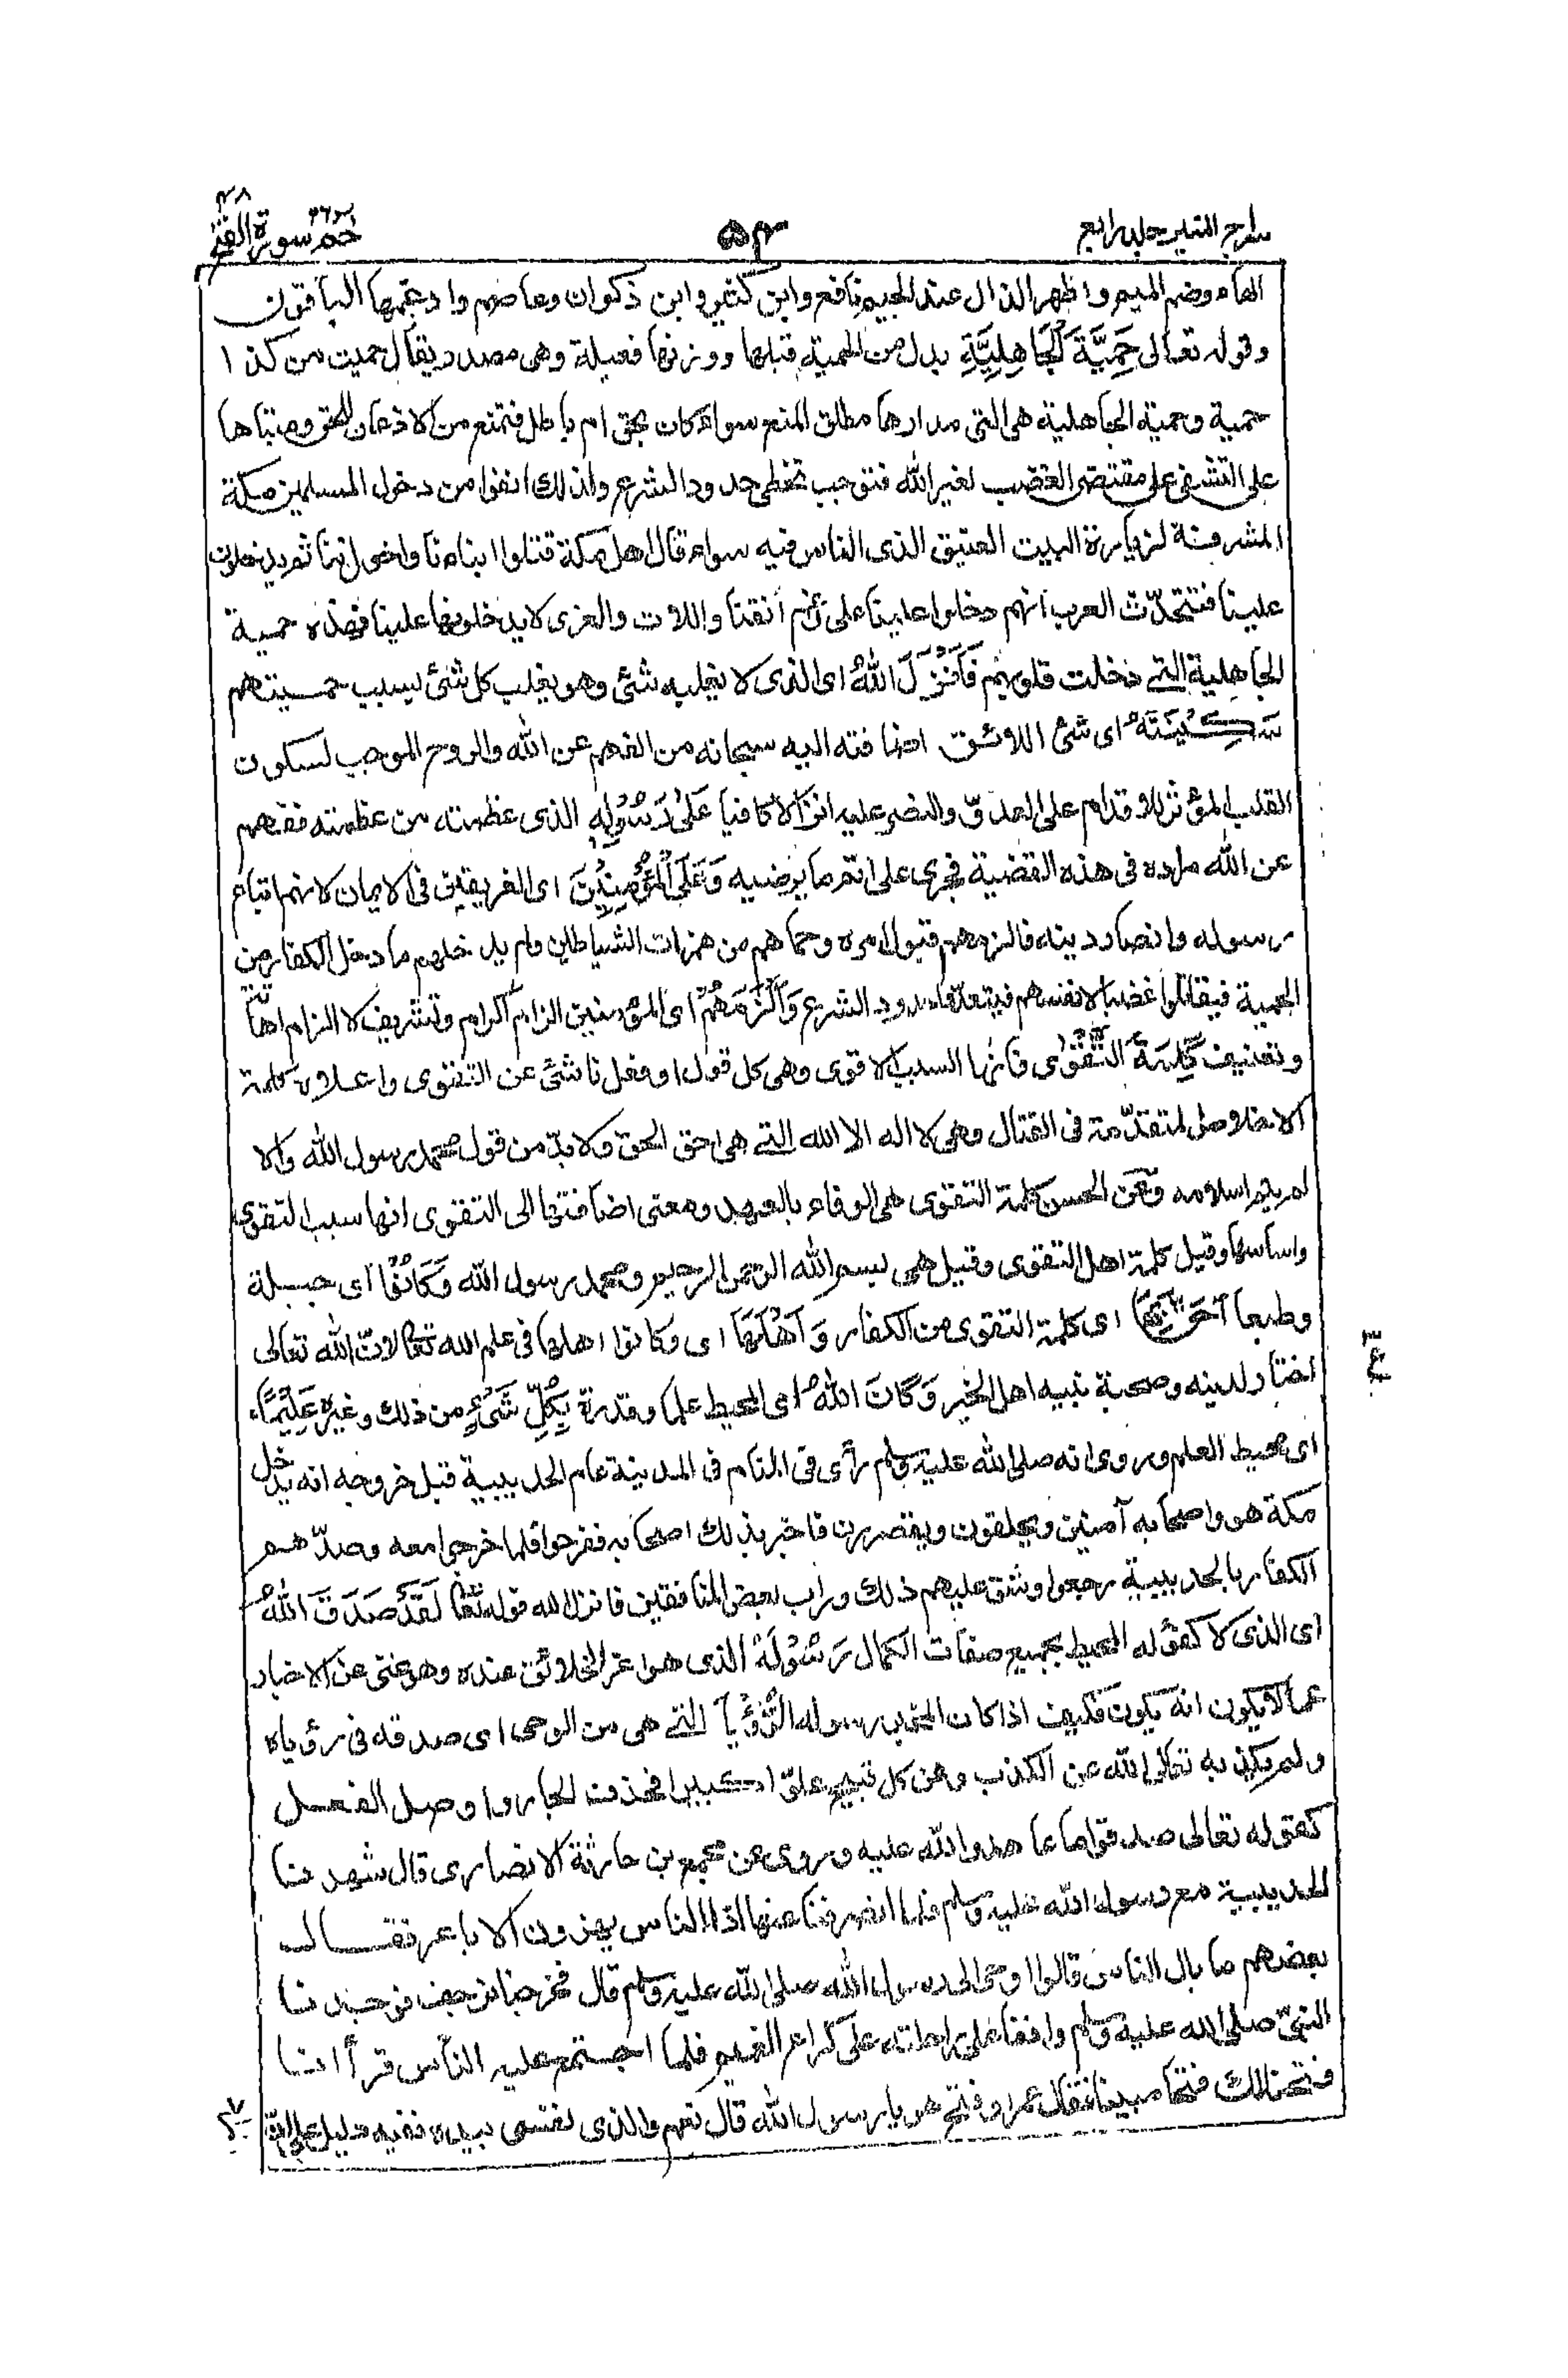 سراج المنير جلد رابع
٥٤
حم ٢٦ سورة الفتح ٤٨
الهاء وضم الميم واظهر الذال عند الجيم نافع وابن كثير وابن ذكوان وعاصم وادغمها الباقون
وقوله تعالى حَمِيَّةَ الْجَاهِلِيَّةِ بدل من الحمية قبلها ووزنها فعيلة وهى مصدر يقال حميت من كذا
حمية وحمية الجاهلية هى التى مدارها مطلق المنع سواء كان بحق ام باطل فتمنع من الاذعان للحق ومبناها
على التشفى على مقتضى الغضب لغير الله فتوجب تخطى حدود الشرع ولذلك انفوا من دخول المسلمين مكة
المشرفة لزيارة البيت العتيق الذى الناس فيه سواء قال اهل مكة قتلوا ابناءنا واخواننا ثم يدخلون
علينا فتتحدّث العرب انهم دخلوا علينا على رغم أنفنا واللات والعزى لا يدخلونها علينا فهذه حمية
الجاهلية التے دخلت قلوبهم فَاَنْزَلَ اللّٰهُ اى الذى لا يغلبه شئ وهو يغلب كل شئ بسبب حميتهم
سَكِيْنَتَهٗ اى شئ اللائق اضافته اليه سبحانه من الفهم عن الله والروح الموجب لسكون
القلب المؤثر للاقدام على العدوّ والنصر عليه انزالا كافيا عَلٰى رَسُوْلِهٖ الذى عظمته من عظمته ففهم
عن الله مراده فى هذه القضية فجرى على اتم ما يرضيه وَعَلَى الْمُؤْمِنِيْنَ اى الغريقين فى الايمان لانهم اتباع
رسوله وانصار دينه فالزمهم قبول امره وحماهم من همزات الشياطين ولم يدخلهم ما دخل الكفار من
الحمية فيقاتلوا غضبا لانفسهم فيتعدّوا حدود الشرع وَاَلْزَمَهُمْ اى المؤمنين الزام اكرام وتشريف لا الزام اهانة
وتعنيف كَلِمَةَ التَّقْوٰى فانها السبب الاقوى وهى كل قول او فعل ناشئ عن التقوى واعلاه كلمة
الاخلاص المتقدّمة فى القتال وهى لا اله الا الله التے هى احق الحق ولا بدّ من قول محمد رسول الله والا
لم يتم اسلامه وعن الحسن كلمة التقوى هى الوفاء بالعهد ومعنى اضافتها الى التقوى انها سبب التقوى
واساسها وقيل كلمة اهل التقوى وقيل هى بسم الله الرحمن الرحيم ومحمد رسول الله وَكَانُوْٓا اى جبلة
وطبعا اَحَقَّ بِهَا اى كلمة التقوى من الكفار وَاَهْلَهَا اى وكانوا اهلها فى علم الله تعالى لانّ الله تعالى
اختار لدينه وصحبة نبيه اهل الخير وَكَانَ اللّٰهُ اى المحيط علما وقدرة بِكُلِّ شَىْءٍ من ذلك وغيره عَلِيْمًا
اى محيط العلم وروى انه صلى الله عليه وسلم رأى فى المنام فى المدينة عام الحديبية قبل خروجه انه يدخل
مكة هو واصحابه آمنين ويحلقون ويقصرون فاخبر بذلك اصحابه ففرحوا فلما خرجوا معه وصدّهم
الكفار بالحديبية رجعوا وشق عليهم ذلك وراب بعض المنافقين فانزل الله قوله تعالى لَقَدْ صَدَقَ اللّٰهُ
اى الذى لا كفؤ له المحيط بجميع صفات الكمال رَسُوْلَهُ الذى هو اعز الخلائق عنده وهو غنى عن الاخبار
عما لا يكون انه يكون فكيف اذا كان المخبر رسوله الرُّؤْيَا التے هى من الوحى اى صدقه فى رؤياه
ولم يكذبه تعالى الله عن الكذب وعن كل قبيح علوّا كبيرا فحذف الجار واوصل الفعل
كقوله تعالى صدقوا ما عاهدوا الله عليه وروى عن مجمع بن حارثة الانصارى قال شهدنا
الحديبية مع رسول الله عليه وسلم فلما انصرفنا عنها اذا الناس يهزون الاباعر فقال
بعضهم ما بال الناس قالوا اوحى الى رسول الله صلى الله عليه وسلم قال فخرجنا نزجف فوجدنا
النبىّ صلى الله عليه وسلم واقفا على راحلته على كراع الغميم فلما اجتمع عليه الناس قرأ انا
فتحنا لك فتحا مبينا فقال عمر او فتح هو يا رسول الله قال نعم والذى نفسى بيده ففيه دليل على انّ